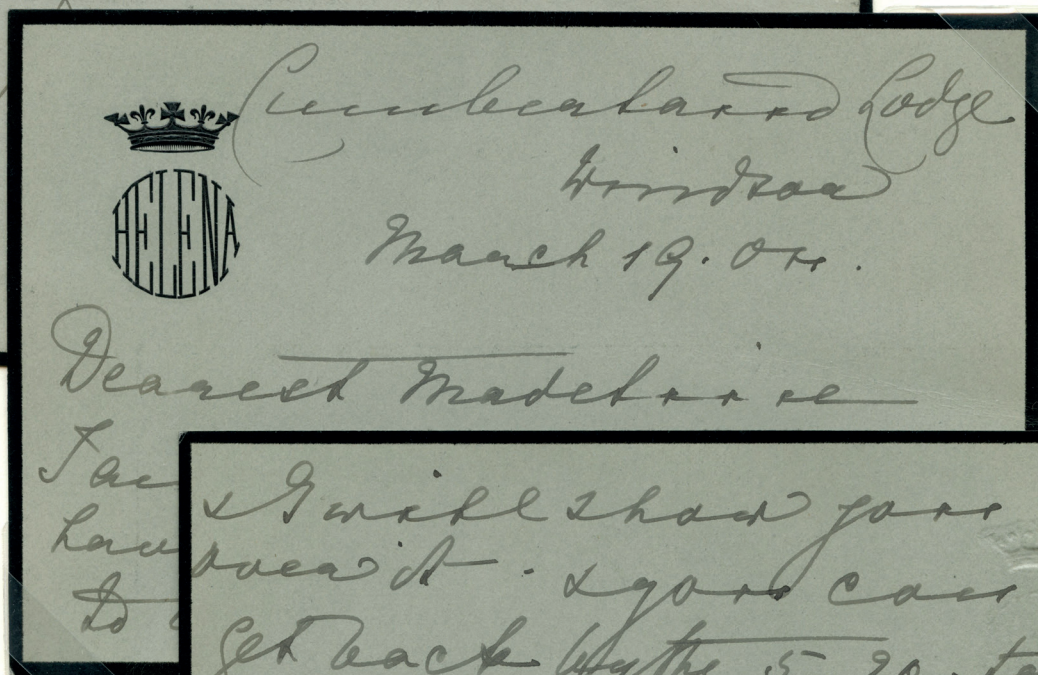 HELENA
Cumberland Lodge
Windsor
March 19. 04.
Dearest Madeline
I am
have
to
& I will show you
over it. & you can
get back by the 5.20